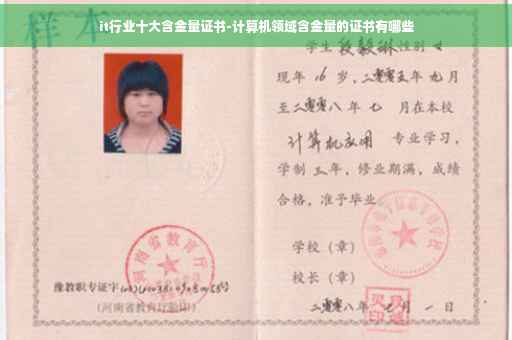 it行业十大含金量证书-计算机领域含金量的证书有哪些
样本
学生 段毅琳 性别 女
现年 16 岁，二零零五年 九月
至二零零八年 七 月在本校
计算机应用 专业学习，
学制 三 年，修业期满，成绩
合格，准予毕业。
学校（章）
校长（章）
二零零八年 七月 一 日
河南省教育厅
豫教职专证字
（河南省教育厅验印）